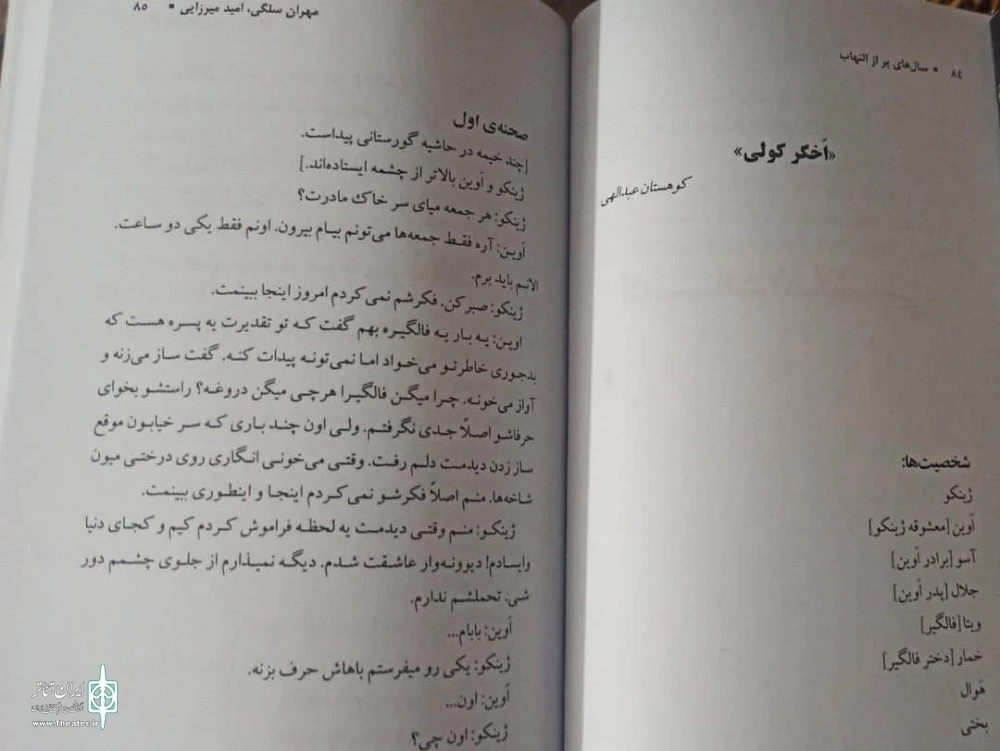 ۸۴ ■ سال‌های پر از التهاب
«اَخگر کولی»
کوهستان عبدالهی
شخصیت‌ها:
ژینکو
آوین [معشوقه ژینکو]
آسو [برادر آوین]
جلال [پدر آوین]
ویتا [فالگیر]
خمار [دختر فالگیر]
هَوال
بختی
مهران سلگی، امید میرزایی ■ ۸۵
صحنه‌ی اول
[چند خیمه در حاشیه گورستانی پیداست.
ژینکو و آوین بالاتر از چشمه ایستاده‌اند.]
ژینکو: هر جمعه میای سر خاک مادرت؟
آوین: آره فقط جمعه‌ها می‌تونم بیام بیرون. اونم فقط یکی دو ساعت.
الانم باید برم.
ژینکو: صبر کن. فکرشم نمی‌کردم امروز اینجا ببینمت.
اوین: یه بار یه فالگیره بهم گفت که تو تقدیرت یه پسره هست که
بدجوری خاطرتو می‌خواد اما نمی‌تونه پیدات کنه. گفت ساز می‌زنه و
آواز می‌خونه. چرا میگن فالگیرا هرچی میگن دروغه؟ راستشو بخوای
حرفاشو اصلاً جدی نگرفتم. ولی اون چند باری که سر خیابون موقع
ساز زدن دیدمت دلم رفت. وقتی می‌خونی انگاری روی درختی میون
شاخه‌ها. منم اصلاً فکرشو نمی‌کردم اینجا و اینطوری ببینمت.
ژینکو: منم وقتی دیدمت یه لحظه فراموش کردم کیم و کجای دنیا
وایسادم! دیوونه‌وار عاشقت شدم. دیگه نمیذارم از جلوی چشمم دور
شی. تحملشم ندارم.
آوین: بابام...
ژینکو: یکی رو میفرستم باهاش حرف بزنه.
آوین: اون...
ژینکو: اون چی؟
ایران تئاتر
www.theater.ir